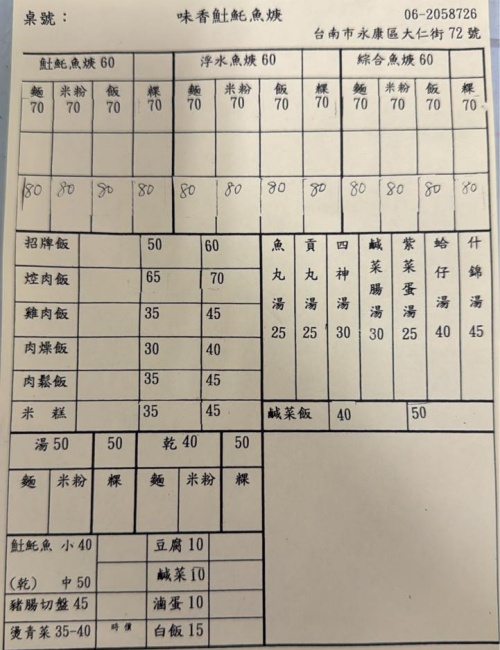 桌號： 味香𩵚魠魚焿 06-2058726
台南市永康區大仁街72號
𩵚魠魚焿60 浮水魚焿60 綜合魚焿60
麵 米粉 飯 粿 麵 米粉 飯 粿 麵 米粉 飯 粿
70 70 70 70 70 70 70 70 70 70 70 70
80 80 80 80 80 80 80 80 80 80 80 80
招牌飯 50 60
焢肉飯 65 70
雞肉飯 35 45
肉燥飯 30 40
肉鬆飯 35 45
米 糕 35 45
魚丸湯 25
貢丸湯 25
四神湯 30
鹹菜腸湯 30
紫菜蛋湯 25
蛤仔湯 40
什錦湯 45
鹹菜飯 40 50
湯50 50 乾40 50
麵 米粉 粿 麵 米粉 粿
𩵚魠魚 小40 豆腐10
(乾) 中50 鹹菜10
豬腸切盤45 滷蛋10
燙青菜35-40 時價 白飯15